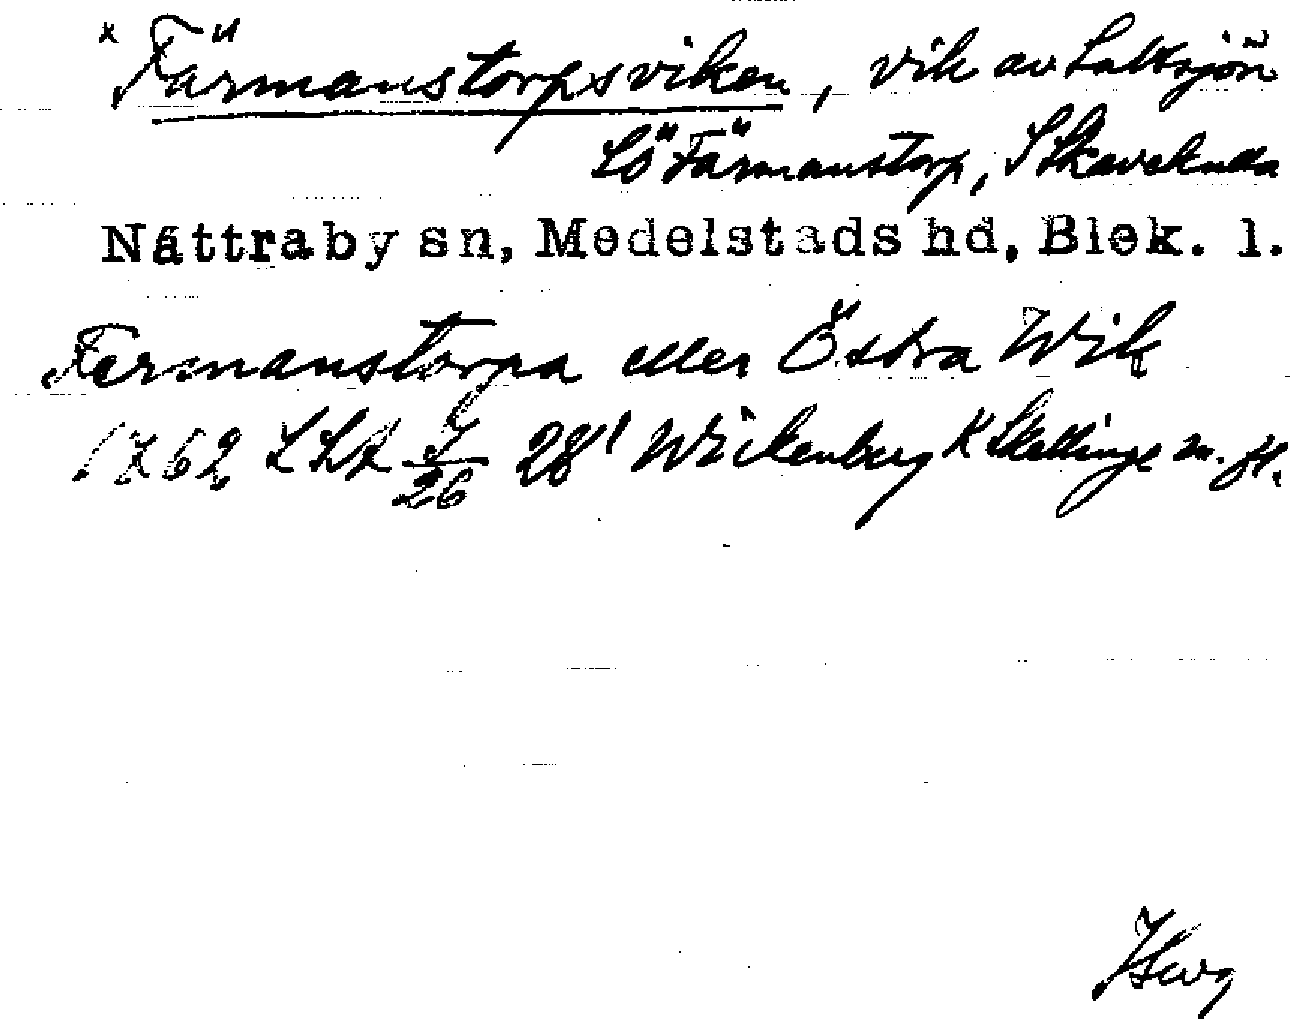 x Färmanstorpsviken, vik av Saltsjön
SÖ Färmanstorp, S Skavekulla
Nättraby sn, Medelstads hd, Blek. l.
Fermanstorpa eller Östra Wik
1762 LSA J/26 28¹ Wickenberg K Skellinge m. fl.